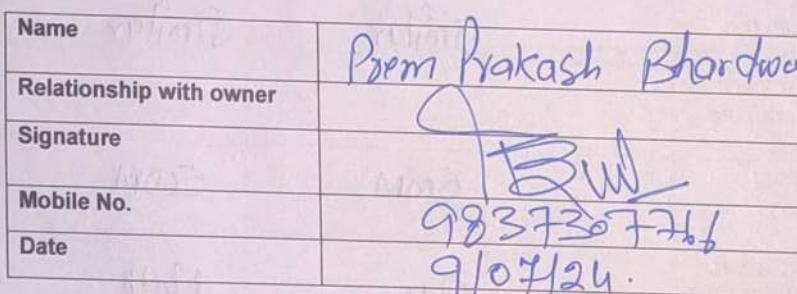 Name Prem Prakash Bhardwa
Relationship with owner
Signature
Mobile No. 9837307766
Date 9/07/24.